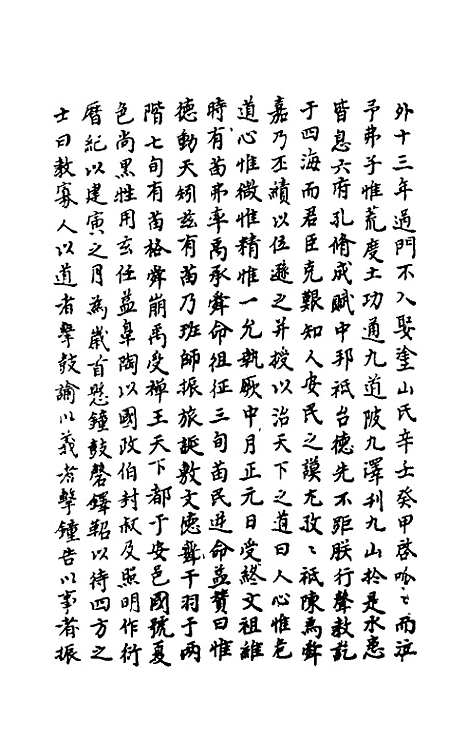 外十三年過門不入娶塗山氏辛壬癸甲啓呱〻而泣
予弗子惟荒度土功通九道陂九澤刊九山於是水患
皆息六府孔脩成賦中邦祗台德先不距朕行聲教訖
于四海而君臣克艱知人安民之謨尤孜〻祗陳焉舜
嘉乃丕績以位遜之并授以治天下之道曰人心惟危
道心惟微惟精惟一允執厥中月正元日受終文祖維
時有苗弗率禹承舜命徂征三旬苗民逆命益贊曰惟
德動天矧茲有苗乃班師振旅誕敷文德舞干羽于兩
階七旬有苗格舜崩禹受禪王天下都于安邑國號夏
色尚黑牲用玄任益臯陶以國政伯封叔及照明作衍
曆紀以建寅之月為歲首懸鐘鼓磬鐸鞀以待四方之
士曰教寡人以道者擊鼓諭以義者擊鐘告以事者振